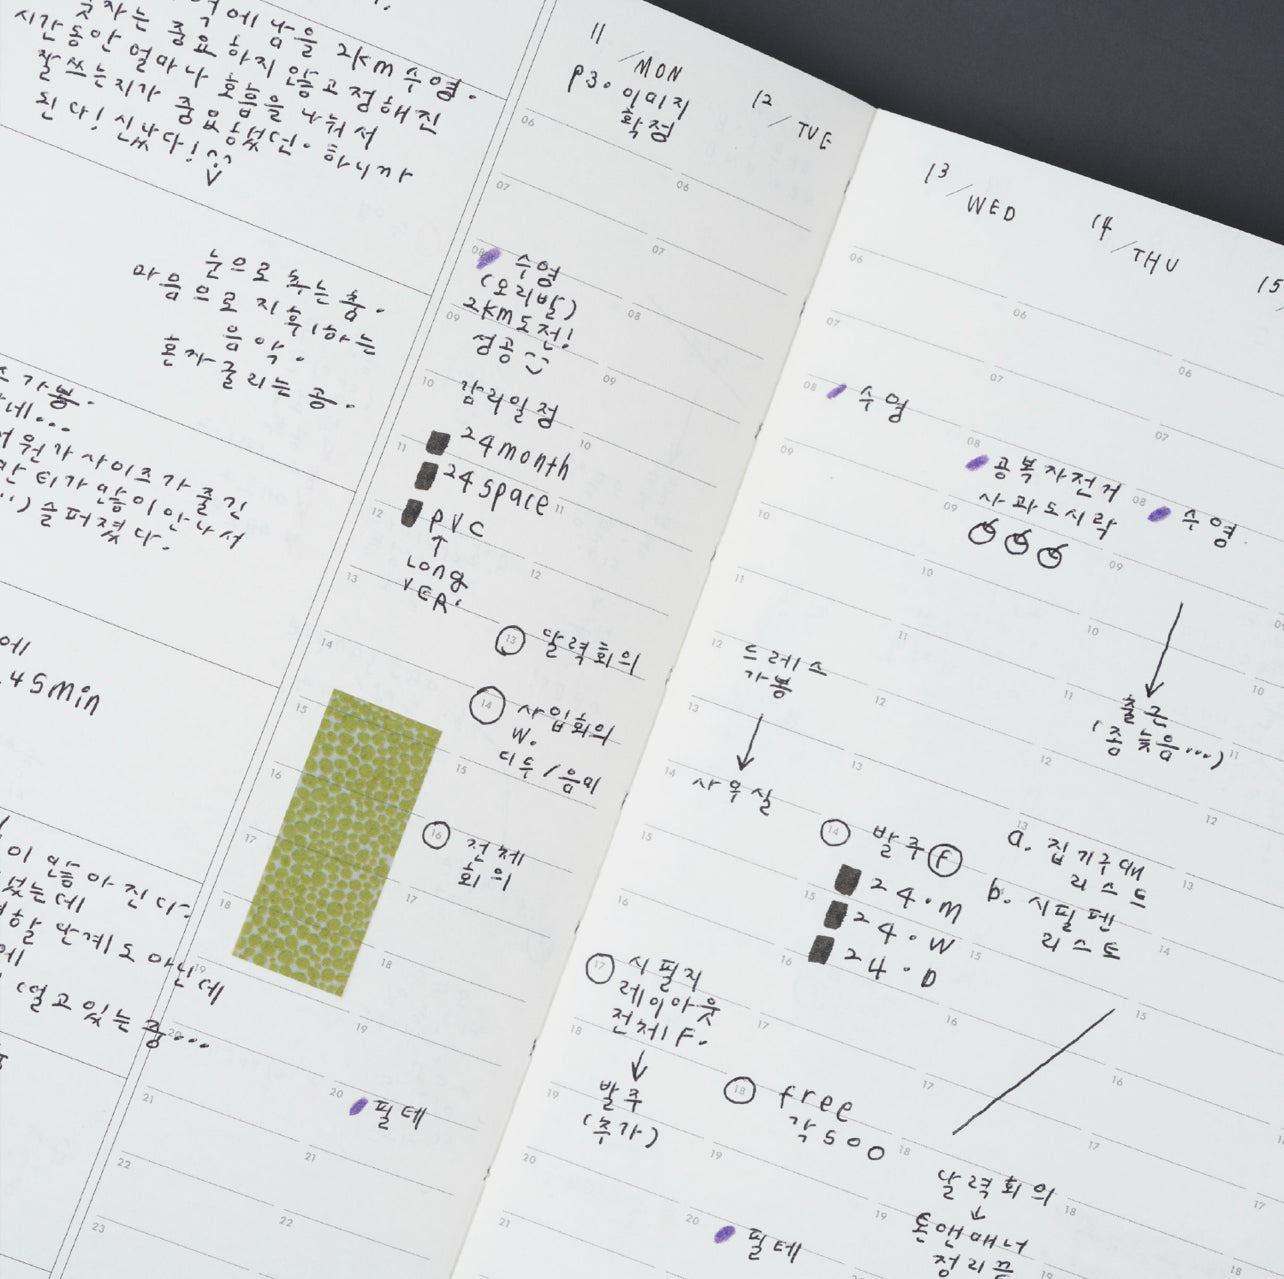 에 남을 2km 수영.
숫자는 중요하지 않고 정해진
시간동안 얼마나 호흡을 나눠서
잘 쓰는지가 중요했던. 하니까
된다! 신났다!
눈으로 추는 춤.
마음으로 지휘하는
음악.
혼자 굴리는 공.
가봉.
네...
원가 사이즈가 줄긴
티가 많이 안 나서
슬퍼졌다.
에
45min
이 많아진다.
었는데
할 단계도 아닌데
에
떨고 있는 중...
11 / MON
P3. 이미지
확정
06
07
08
수영
(오리발)
2km도전!
성공
09
10
감리일정
11
24month
24space
12
PVC
↑
Long
VER.
13
14
15
16
17
18
19
20
21
22
23
12 / TUE
06
07
08
09
10
11
12
13 달력회의
14 사입회의
W.
디두/음미
15
16 전체
회의
17
18
19
20 필테
21
22
13 / WED
06
07
08 수영
09
10
11
12 드레스
가봉
↓
13
14 사무실
15
16
17 시필지
레이아웃
전체F.
↓
18
19 발주
(추가)
20
21
14 / THU
06
07
08 공복자전거
사과도시락
09
10
11
12
13
14 발주 F
24.M
15 24.W
16 24.D
17
18 free
각500
19
20 필테
15
06
07
08 수영
09
↓
10
11 출근
(좀 늦음...)
12
13
a. 집기구매
리스트
b. 시필펜
리스트
14
15
16
17
18
달력회의
↓
19 톤앤매너
정리
09
10
11
12
13
14
15
16
17
18
19